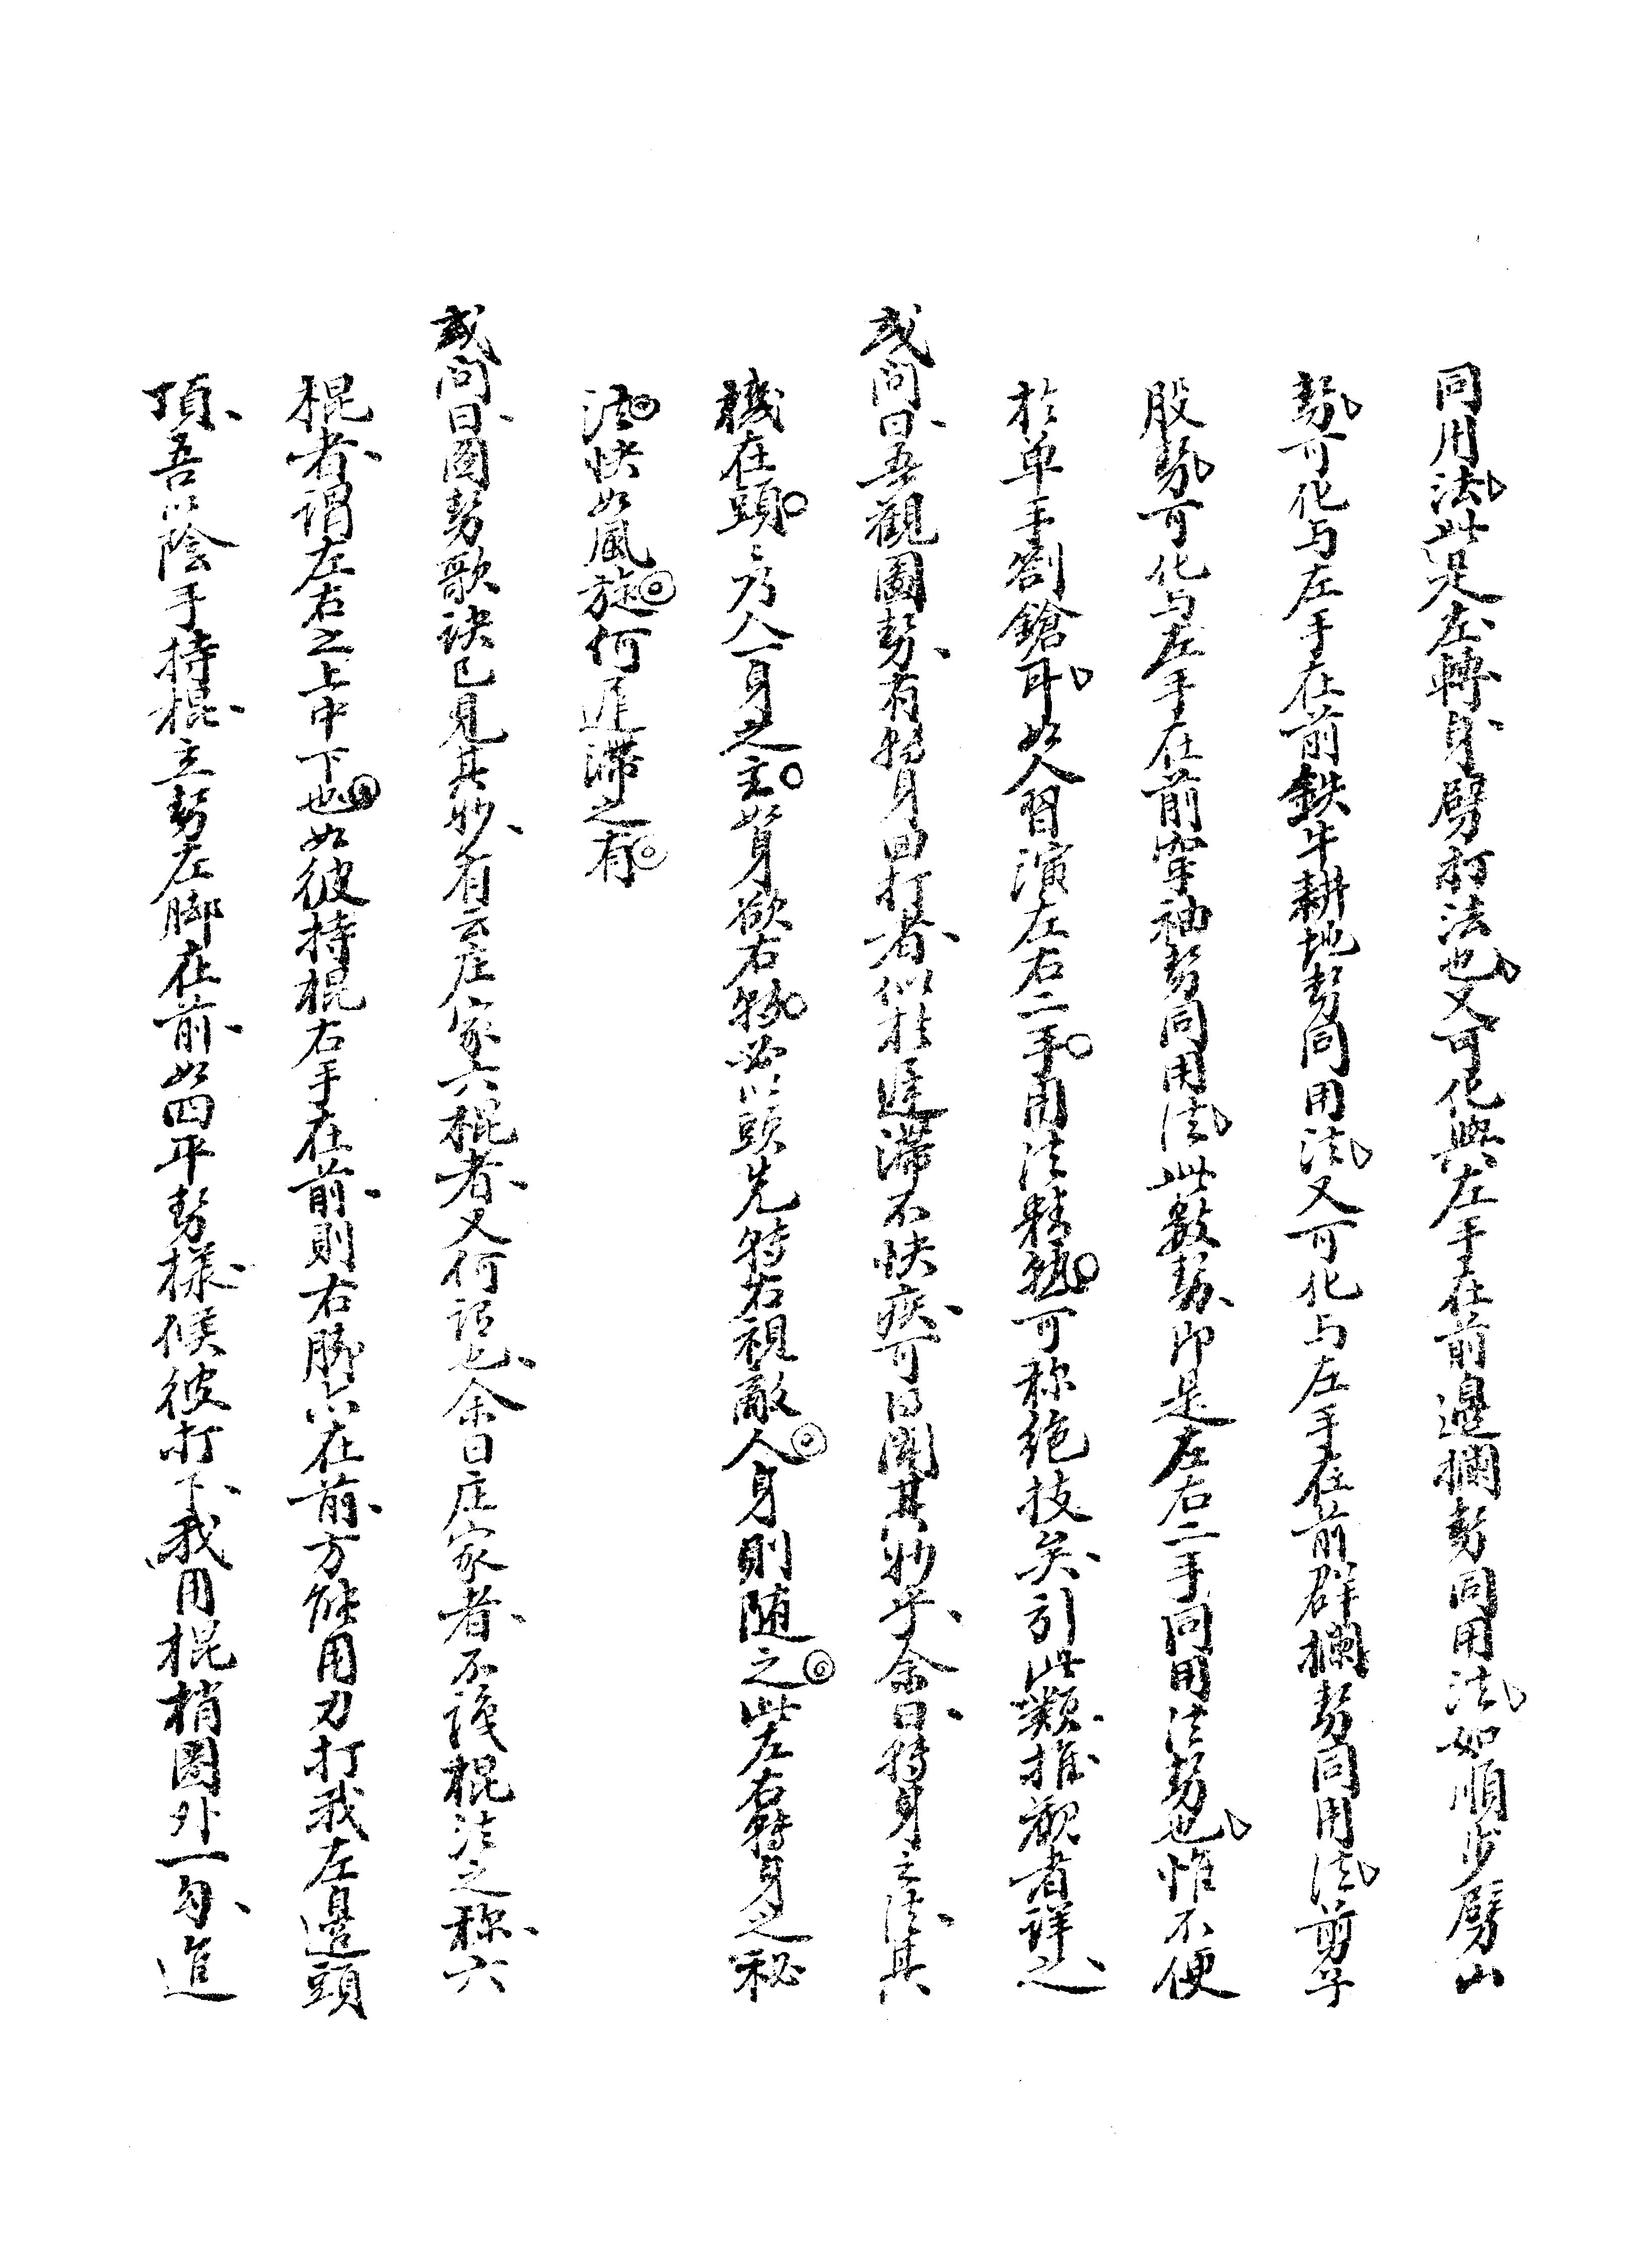 同用法此是左轉身劈打法也又可化與左手在前邊攔势同用法如順步劈山
势可化与左手在前鉄牛耕地势同用法又可化与左手在前群攔势同用法剪子
股势可化与左手在前穿袖势同用法此数势即是左右二手同用法势也惟不便
於单手劄鎗耳如人習演左右二手用法精熟可称絶技矣引此類推觀者詳之
或问曰吾觀圖势有轉身回打者似於遲滞不快疾可得聞其妙乎余曰轉身之法其
機在頭〻乃人一身之主如身欲右轉必以頭先轉右視敵人身則随之此左右轉身之秘
法快如風旋何遲滞之有
或问曰圖势歌訣已見其妙有云庄家六棍者又何説也余曰庄家者不諳棍法之称六
棍者謂左右之上中下也如彼持棍右手在前則右脚亦在前方能用力打我左邊頭
頂吾以陰手持棍立势左脚在前如四平势樣候彼打下我用棍梢圈外一勾進